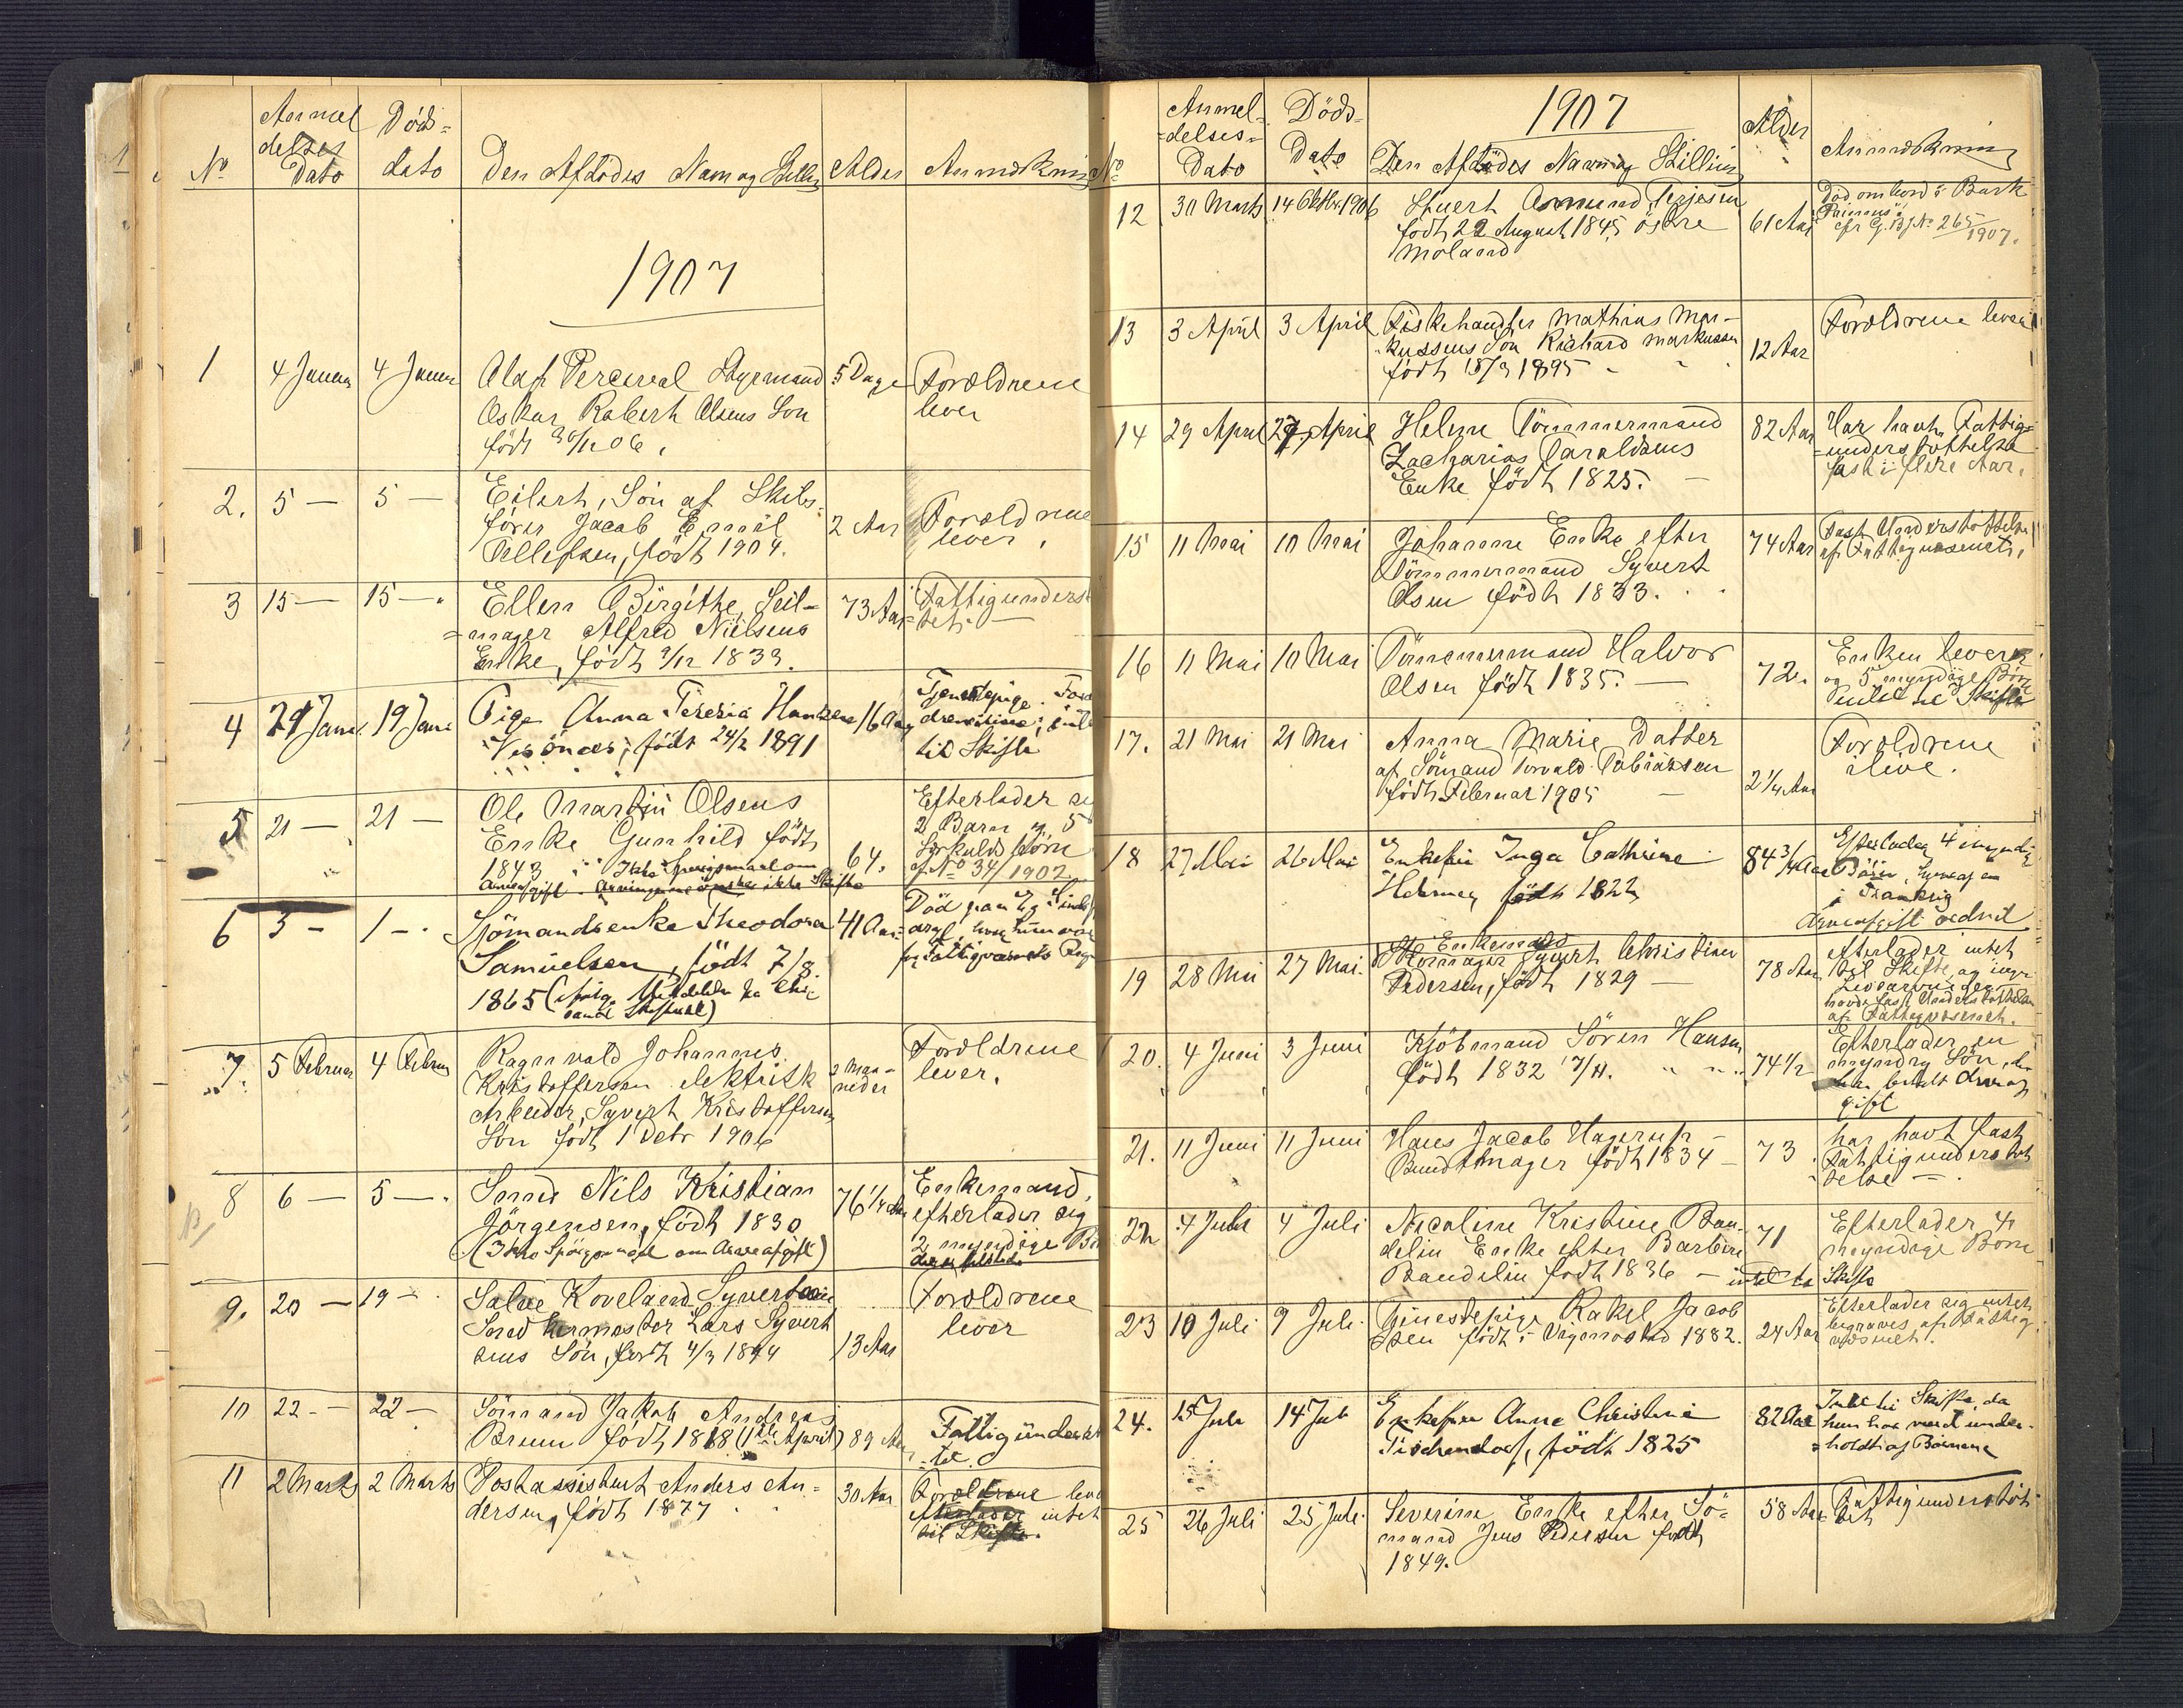 Anmel
delses
Dato
Døds=
dato
No
Den Afdødes Navn og Stilling
Alder
Anmærkning
1907
1 4 Januar 4 Januar Olaf Percival Styrmand 5 Dage Forældrene
Oskar Robert Olsens Søn lever
født 30/12 06.
2. 5 — 5 — Eilert, Søn af Skibs=
fører Jacob Emil 2 Aar Forældrene
Tellefsen, født 1904. lever.
3 15 — 15 — Ellen Birgithe, Seil= 73 Aar Fattigunderst
=mager Alfred Nielsens tet. —
Enke, født 9/12 1833.
4 21 Jan. 19 Jan. Pige Anna Teresia Hansen 16 Aar Tjenestepige. For
født 24/2 1891
til Skifte
5 21 — 21 — Ole Martin Olsens Efterlader sig
Enke Gunhild født 64. 2 Barn og 5
1843 Ikke Spørgsmaal om
Arveafgift. Arvingerne ønsker ikke Skifte cf No 34/1902.
6 3 — 1 — Sjømandsenke Theodora 41 Aar Død paa Eg Sinds
Samuelsen, født 7/8 asyl, hvor hun var
1865 for Fattigvæsenets Regn
7. 5 Februar 4 Februar Ragnvald Johannes 2 Maa= Forældrene
Kristoffersen elektrisk neder lever.
Arbeider, Syvert Kristoffersens
Søn født 1 Decbr 1906
8 6 — 5 — Smed Nils Kristian 76 1/4 Aar Enkemand,
Jørgensen, født 1830 efterlader sig
(Ikke Spørgsmaal om Arveafgift) 2 myndige Bø
9. 20 — 19 — Salve Koveland Syvertsen Forældrene
Smedkermester Lars Syvert 13 Aar lever
sens Søn, født 4/3 1894
10 22 — 22 — Sømand Jakob Andreas Fattigunderst
Bruun født 1818 (1ste April) 89 Aar tet.
11 2 Marts 2 Marts Postassistent Anders An= 30 Aar Forældrene leve
dersen, født 1877 efterlader intet
til Skifte.
No
Anmel=
=delses=
Dato
Døds=
Dato
1907
Den Afdødes Navn og Stilling
Alder
Anmærkning
12 30 Marts 14 Oktbr. 1906 Stuert Amund Terjesen 61 Aar Død ombord i Bark
født 22 August 1845 østre "Primus"
Moland cfr G. B. J No 265/1907.
13 3 April 3 April Fiskehandler Mathias Mar= Forældrene lever
kussens Søn Richard Markussen 12 Aar
født 15/3 1895
14 29 April 27 April Helene Tømmermand 82 Aar Har havt Fattig=
Zacharias Taraldsens =understøttelse
Enke født 1825. — fast i flere Aar.
15 11 Mai 10 Mai Johanne Enke efter 74 Aar Fast Understøttelse
Tømmermand Syvert af Fattigvæsenet.
Olsen født 1833.
16 11 Mai 10 Mai Tømmermand Halvor 72. Enken lever
Olsen født 1835. — og 5 myndige Børn
Intet til Skifte
17. 21 Mai 21 Mai Anna Marie Datter Forældrene
af Sømand Torvald Tobiassen 2 1/4 Aar ilive.
født Februar 1905 —
18 27 Mai 26 Mai Enkefru Inga Cathrine 84 3/4 Aar Efterlader 4 myndige
født 1822 Børn, hvoraf en
i Frankrig
Arveafgift ordnet
19 28 Mai 27 Mai. Enkemand
Syvert Christian 78 Aar efterlader intet
Pedersen, født 1829 — til Skifte, og ingen
Livsarvinger
havde fast Understøttelse
af Fattigvæsenet.
20. 4 Juni 3 Juni Kjøbmand Søren Hansen 74 1/2 Efterlader en
født 1832 17/11. myndig Søn, der
har betalt Arveaf
gift
21. 11 Juni 11 Juni Hans Jacob Hagerup — 73. har havt fast
Bundtmager født 1834 — Fattigunderstøt
telse —.
22 4 Juli 4 Juli Nicoline Kristine Ban= 71 Efterlader 4
delin Enke efter Barber myndige Børn
Bandelin født 1836 — intet til Skifte
23 10 Juli 9 Juli Tjenestepige Rakel Jacob 24 Aar Efterlader sig intet
sen født i Vigmostad 1882. begraves af Fattig
væsenet.
24. 15 Juli 14 Juli Enkefru Anne Christine 82 Aar Intet til Skifte, da
Tischendorf, født 1825 hun har været under=
=holdt af Børnene
25 26 Juli 25 Juli Severine Enke efter Sø= 58 Aar Fattigunderstøt
mand Jens Pedersen født tet
1849.